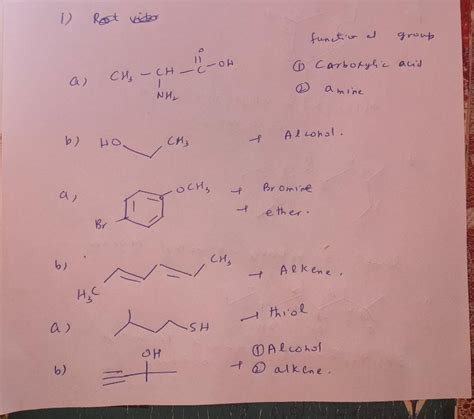 1)
functional group
a) CH3 - CH - C - OH
O
NH2
① Carboxylic acid
② amine
b) HO CH3 → Alcohol.
a, OCH3 → Bromine
Br → ether.
b) H3C CH3 → Alkene.
a) SH → thiol
b) OH → ① Alcohol
② alkene.